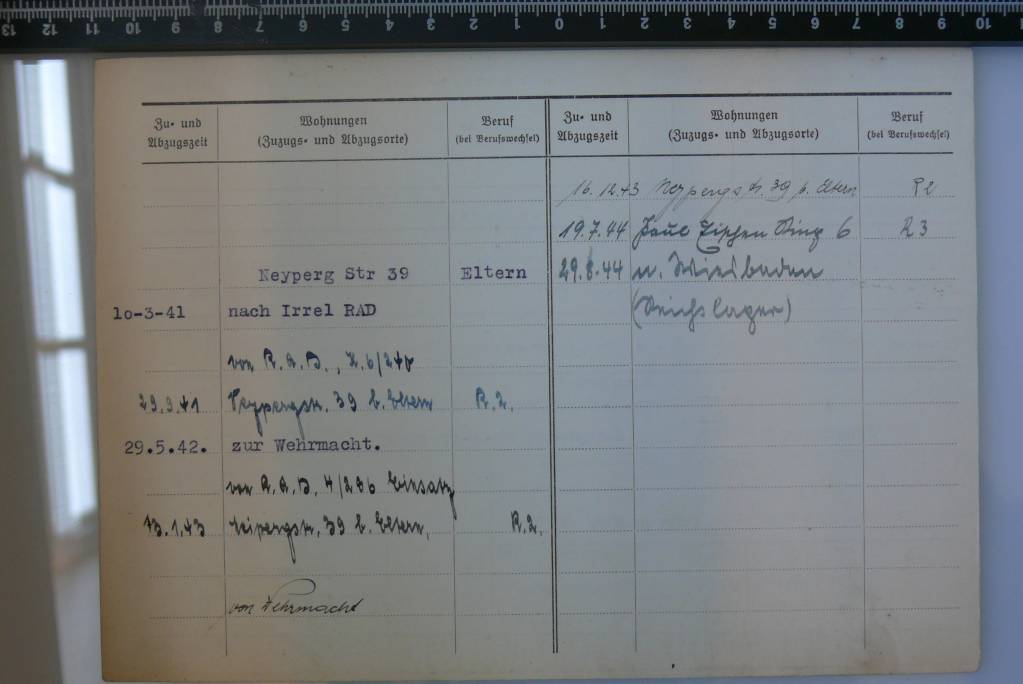 13 12 11 10 9 8 7 6 5 4 3 2 1 0 1 2 3 4 5 6 7 8 9 10
Zu- und Abzugszeit
Wohnungen (Zuzugs- und Abzugsorte)
Beruf (bei Berufswechsel)
Neyperg Str 39 Eltern
10-3-41 nach Irrel RAD
von R.A.D., K.6/240
29.9.41 Neypergstr. 39 b. Eltern R.2.
29.5.42. zur Wehrmacht.
von R.A.D. 4/286 Einsatz
13.1.43 Neipergstr. 39 b. Eltern, R.2.
von Wehrmacht
Zu- und Abzugszeit
Wohnungen (Zuzugs- und Abzugsorte)
Beruf (bei Berufswechsel)
16.12.43 Neypergstr. 39 b. Eltern R2
19.7.44 Ring 6 R3
29.8.44 n. Wiesbaden
(Reichslager)